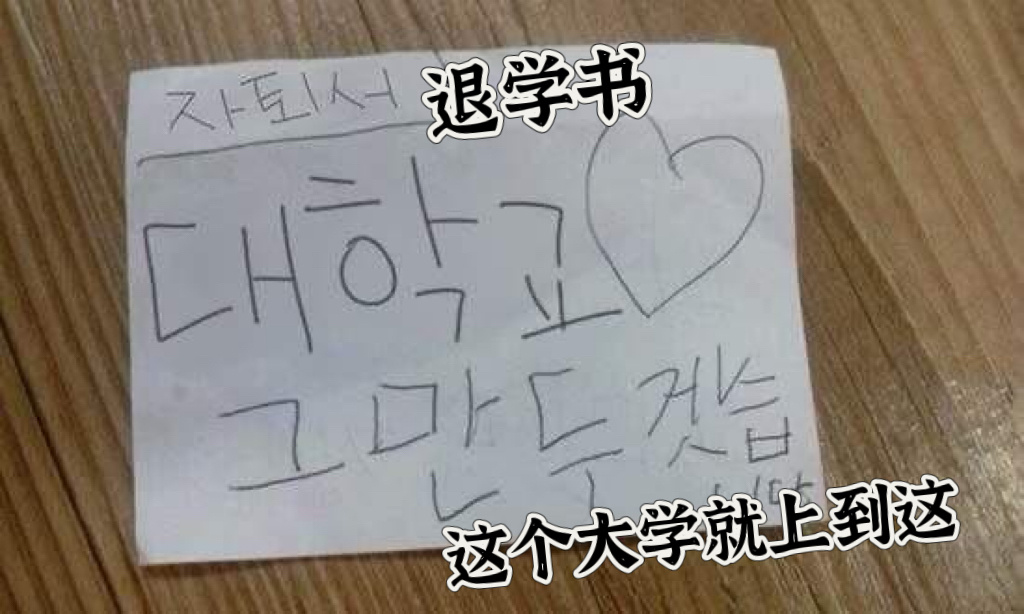 자퇴서
退学书
대학교♡
그만두겟습
니다
这个大学就上到这